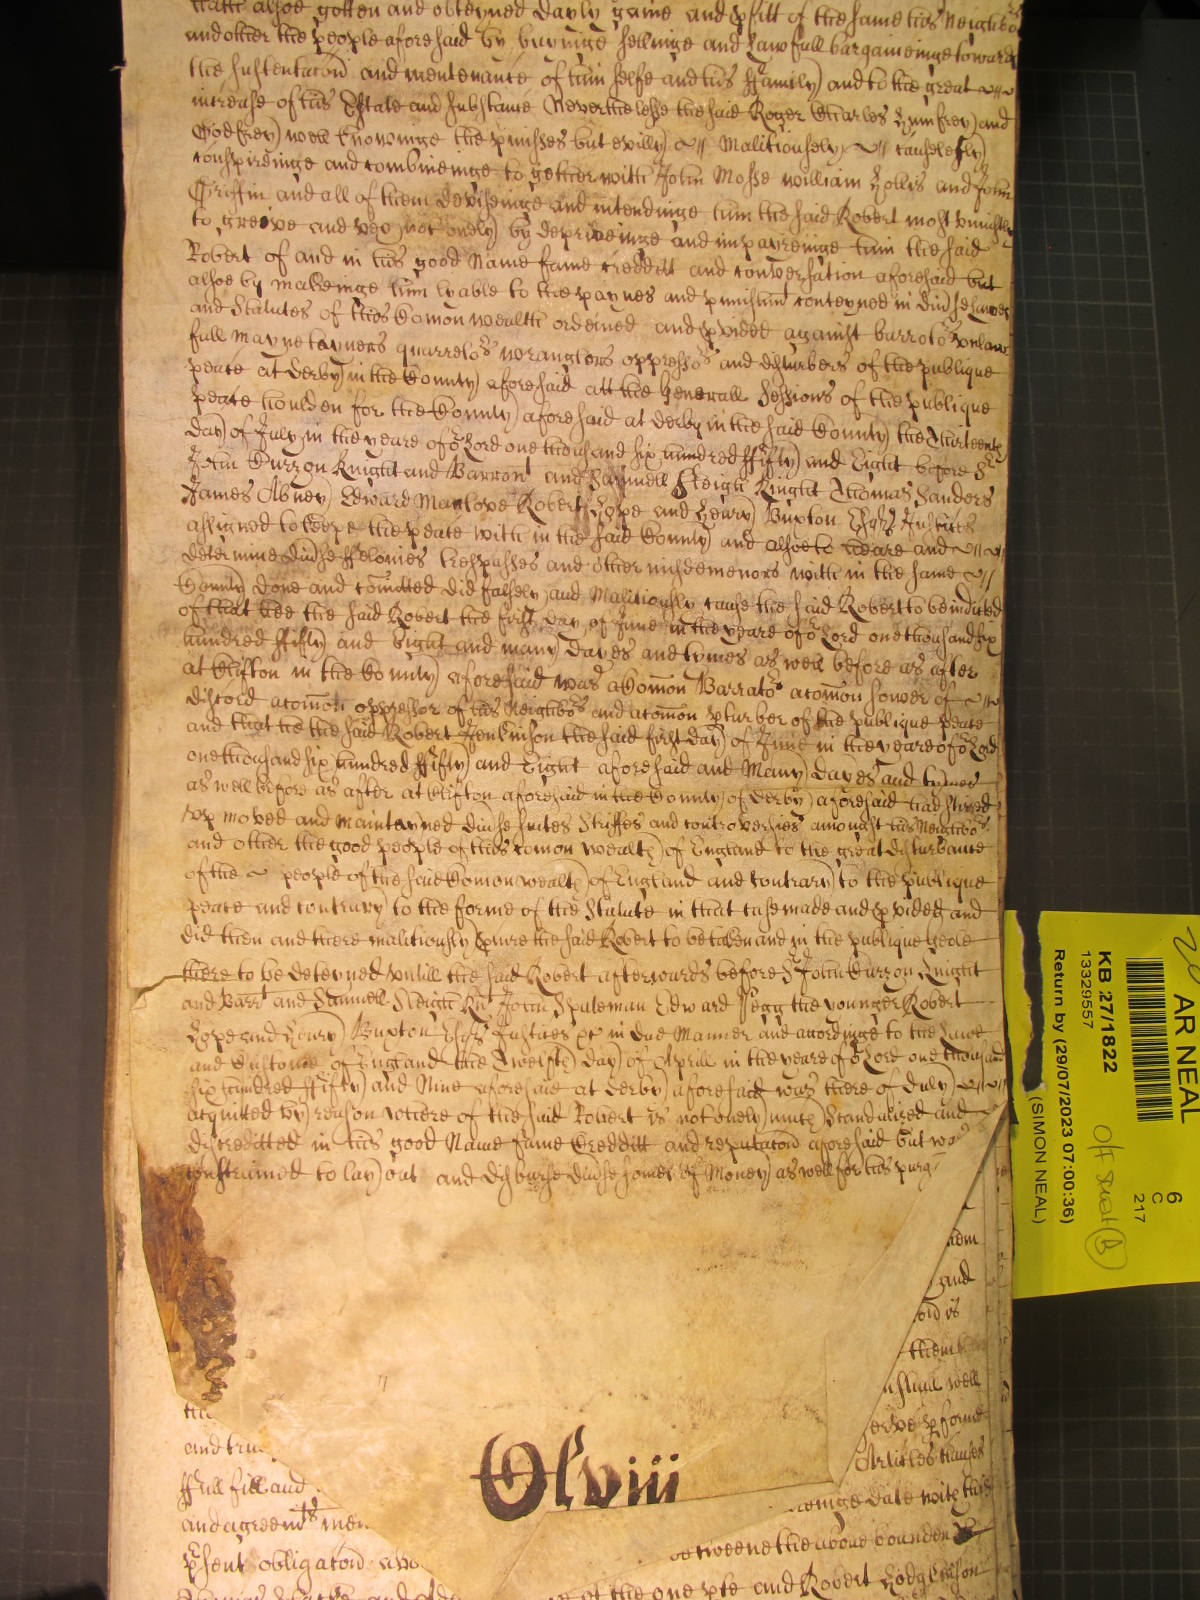 hath alsoe gotten and obteyned dayly gaine and pfitt of the same his Neighbors
and other the people aforesaid by buyinge sellinge and lawfull bargaineinge towards
the sustentacon and mentenance of him selfe and his ffamily and to the great
increase of his Estate and substance Neverthelesse the said Roger Charles Humfrey and
Godfrey well knoweinge the pmisses but evilly Malitiously causelesly
conspireinge and combineinge to gether with John Mosse william Hollis and John
Griffin and all of them deviseinge and intendinge him the said Robert most vniustly
to greive and vex not onely by depriveinge and impayreinge him the said
Robert of and in his good Name fame creddit and conversation aforesaid but
alsoe by makeinge him lyable to the paynes and punishmt conteyned in divse lawes
and Statutes of this Comon wealth ordeined and pvided against barrotors vnlaw
full mayneteyners quarrelors wranglers oppressors and disturbers of the publique
peace at Derby in the County aforesaid att the Generall Sessions of the publique
peace houlden for the County aforesaid at Derby in the said County the Thirteenth
day of July in the yeare of or Lord one thousand six hundred ffifty and Eight before Sr
John Curzon Knight and Barront and Samuell Sleigh Knight Thomas Sanders
James Abney Edward Manlove Robert Hope and Henry Buxton Esqrs Justices
assigned to keepe the peace with in the said County and alsoe to heare and
determine divse ffelonies trespasses and other misdemenors with in the same
County done and comitted did falsely and Malitiously cause the said Robert to be indicted
of that hee the said Robert the first day of June in the yeare of or Lord one thousand six
hundred ffifty and Eight and many dayes and tymes as well before as after
at Clifton in the County aforesaid was a Comon Barrator a comon sower of
discord a comon oppressor of his Neighbors and a comon pturber of the publique peace
and that he the said Robert Jenkinson the said first day of June in the yeare of or Lord
one thousand six hundred ffifty and Eight aforesaid and Many dayes and tymes
as well before as after at Clifton aforesaid in the County of Derby aforesaid had stirred
vp moved and mainteyned divse suites Striffes and controversies amongst his Neighbors
and other the good people of this comon wealth of England to the great disturbance
of the people of the said Comon wealth of England and contrary to the publique
peace and contrary to the forme of the Statute in that case made and pvided and
did then and there malitiously pcure the said Robert to be taken and in the publique Geole
there to be deteyned vntill the said Robert afterwards before Sr John Curzon Knight
and Barrt and Samuell Sleigh Knt John Spateman Edward Pegg the younger Robert
Hope and Henry Buxton Esqrs Justices &c in due Manner and accordinge to the Lawe
and Custome of England the Twelfth day of Aprill in the yeare of or Lord one thousand
six hundred ffifty and Nine aforesaid at Derby aforesaid was there of duly
acquitted by reason where of the said Robert is not onely much Scandalized and
discreditted in his good Name fame Credditt and reputacon aforesaid but was
constrained to lay out and disburse divse somes of Money as well for his purg
and
Clviii
them
well
pforme
Articles clauses
and tru
ffullfill and
date with thes
and agreemts
psent obligacon
betweene the above bounden
of the one pte and Robert Hodgkinson
AR NEAL
6
C
217
KB 27/1822
13329557
Return by (29/07/2023 07:00:36)
(SIMON NEAL)
Off
B